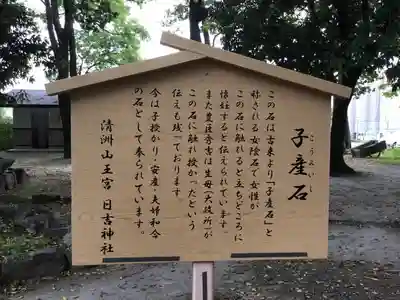 こうみいし
子産石
この石は古来より「子産石」と
称される女性石で女性が
この石に触れると立ちどころに
懐妊すると伝えられています。
また豊臣秀吉は生母(大政所)が
この石に触れ授かったという
伝えも残っております。
今は子授かり・安産・夫婦和合
の石として奉られています。
清洲山王宮 日吉神社